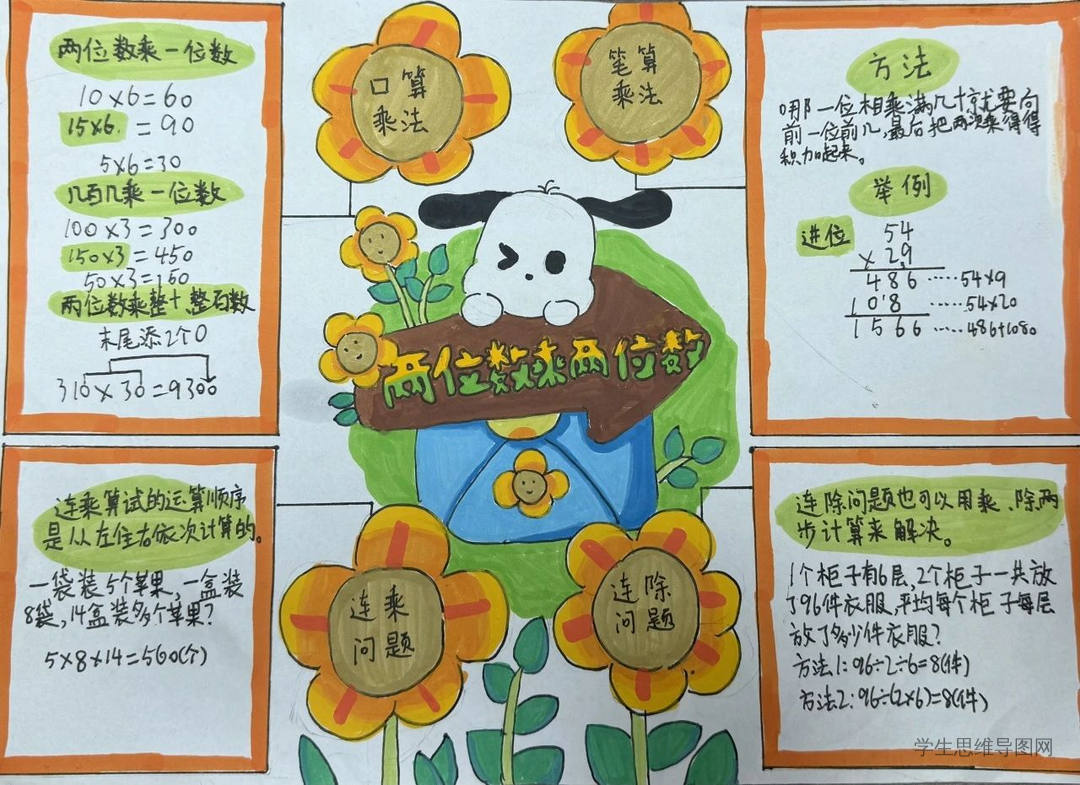 两位数乘一位数
10×6=60
15×6 =90
5×6=30
几百几乘一位数
100×3=300
150×3=450
50×3=150
两位数乘整十、整百数
末尾添2个0
310×30=9300
口算
乘法
笔算
乘法
方法
哪一位相乘满几十就要向
前一位前几,最后把两次乘得得
积加起来。
举例
进位
54
×29
486……54×9
108……54×20
1566……486+1080
两位数乘两位数
连乘算试的运算顺序
是从左往右依次计算的。
一袋装5个苹果,一盒装
8袋,14盒装多个苹果?
5×8×14=560(个)
连乘
问题
连除
问题
连除问题也可以用乘、除两
步计算来解决。
1个柜子有6层,2个柜子一共放
了96件衣服,平均每个柜子每层
放了多少件衣服?
方法1:96÷2÷6=8(件)
方法2:96÷(2×6)=8(件)
学生思维导图网